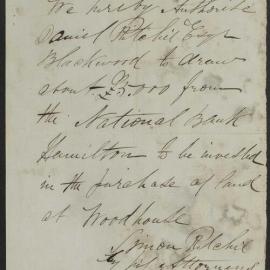 We hereby Authorise
Daniel Ritchie Esqr
Blackwood to draw
about £5,000 from
the National Bank
Hamilton to be invested
in the purchase of land
at Woodhouse
Simon Ritchie
by his Attorney